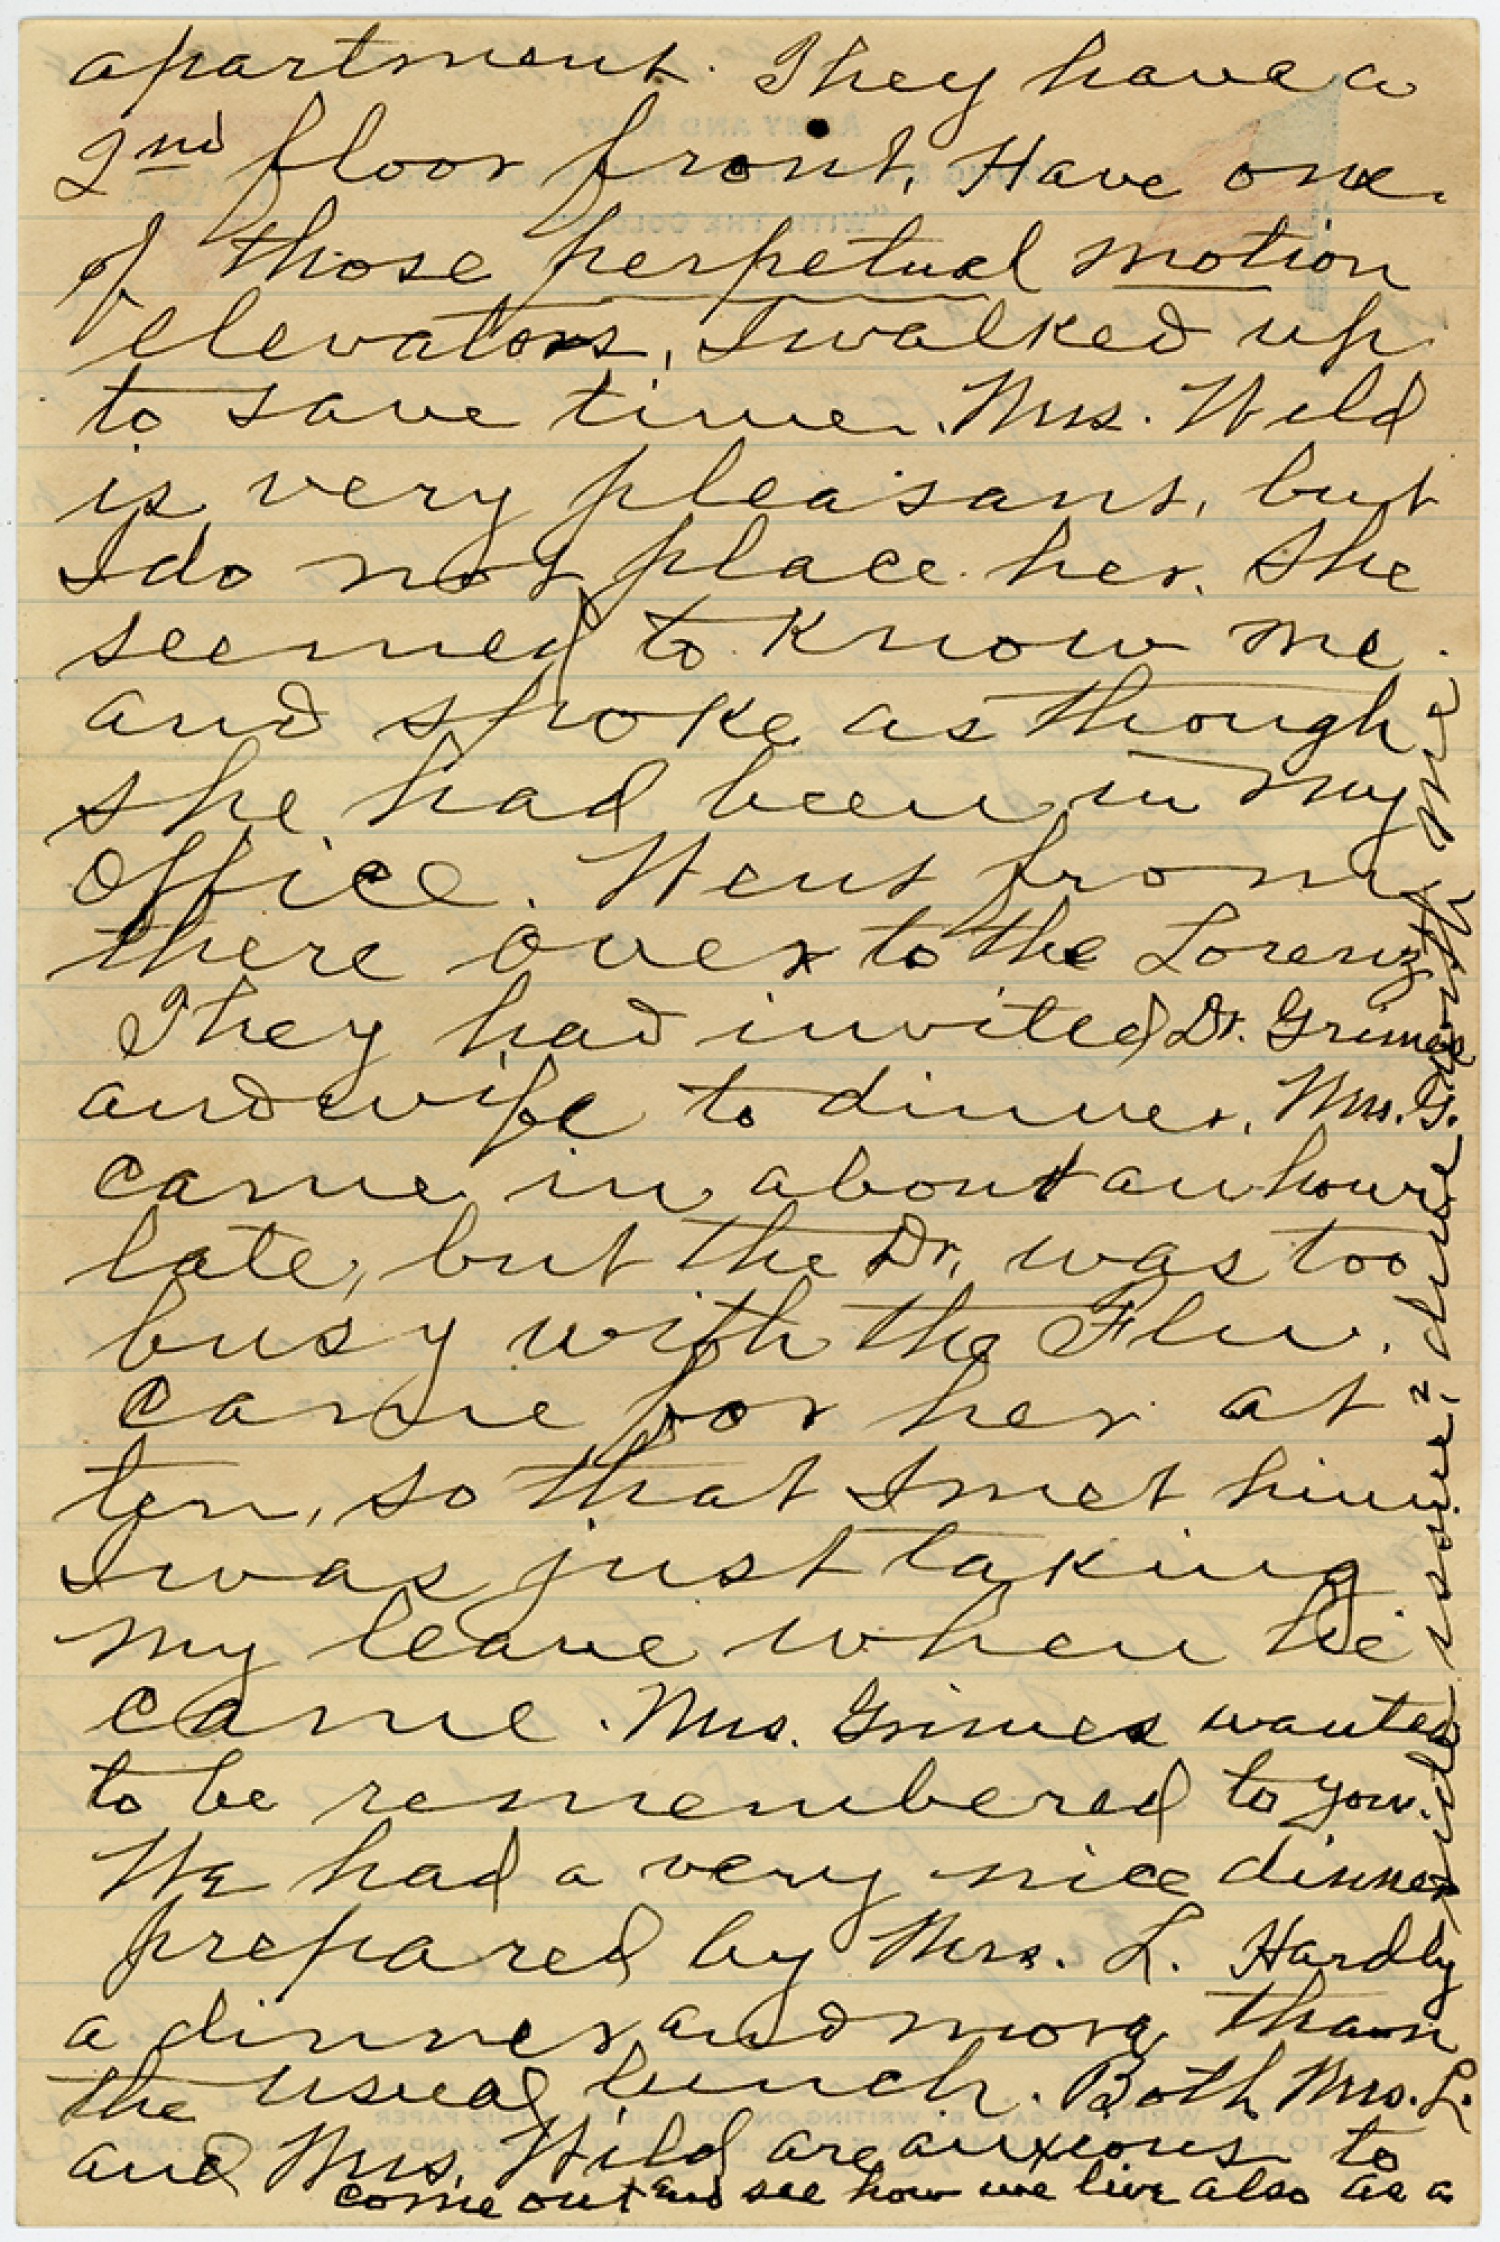 apartment. They have a
2nd floor front, Have one
of those perpetual motion
elevators, I walked up
to save time. Mrs. Wild
is very pleasant, but
I do not place her. She
seemed to know me
and spoke as though
she had been in my
office. Went from
there over to the Lorenz
They had invited Dr. Grimes
and wife to dinner, Mrs. G.
came in about an hour
late, but the Dr. was too
busy with the Flu.
came for her at
ten, so that I met him.
I was just taking
my leave when he
came. Mrs. Grimes wanted
to be remembered to you.
We had a very nice dinner
prepared by Mrs. L. Hardly
a dinner and more than
the usual lunch. Both Mrs. L.
and Mrs. Wild are anxious to
come out and see how we live also as a
side issue? dine with me
ARMY AND NAVY
"WITH THE COLORS"
TO THE WRITER: SAVE BY WRITING ON BOTH SIDES OF THIS PAPER